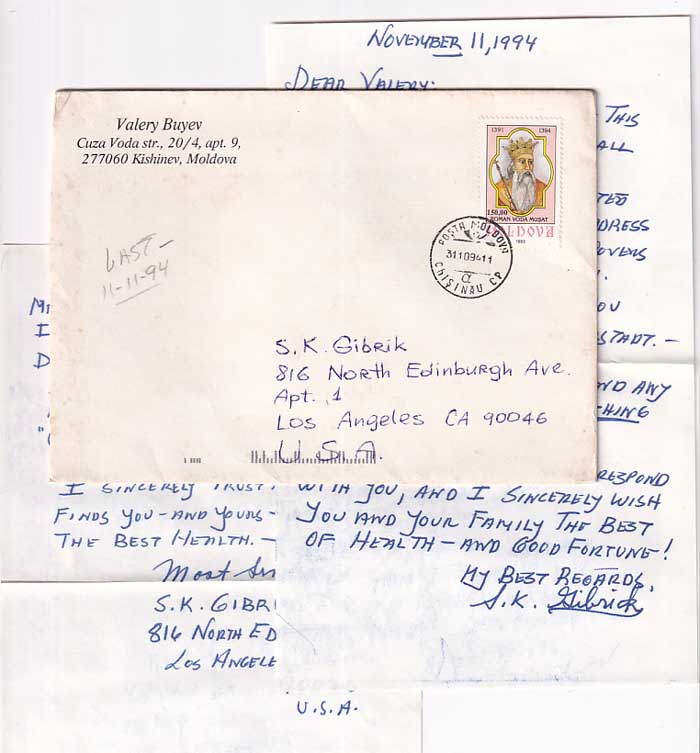 NOVEMBER 11, 1994
DEAR VALERY:
THIS
ALL
DRESS
OVERS
OU
STADT. —
ND ANY
HING
RESPOND
WITH YOU, AND I SINCERELY WISH
YOU AND YOUR FAMILY THE BEST
OF HEALTH — AND GOOD FORTUNE!
MY BEST REGARDS,
S.K. Gibrick
Valery Buyev
Cuza Voda str., 20/4, apt. 9,
277060 Kishinev, Moldova
1391 1394
150,00
ROMAN VODA MUŞAT
MOLDOVA
1993
POŞTA MOLDOVA
311094-11
a
CHIŞINĂU CP
LAST —
11-11-94
S.K. Gibrik
816 North Edinburgh Ave.
Apt. 1
Los Angeles CA 90046
U.S.A.
I
D
I SINCERELY TRUST
FINDS YOU — AND YOURS —
THE BEST HEALTH. —
Most Sin
S.K. GIBRI
816 NORTH ED
LOS ANGELE
U.S.A.